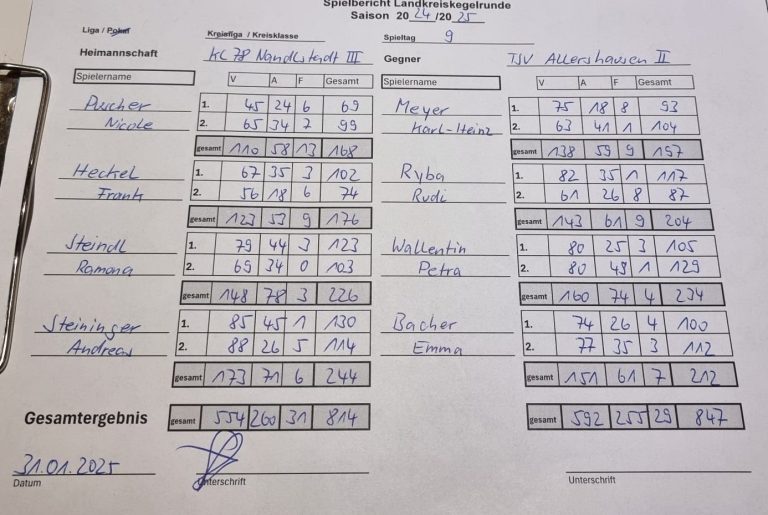 Spielbericht Landkreiskegelrunde
Saison 20 24 /20 25
Liga / Pokal Kreisliga / Kreisklasse Spieltag 9
Heimannschaft KC 78 Nandlstadt III Gegner TSV Allershausen II
Spielername V A F Gesamt Spielername V A F Gesamt
Puscher 1. 45 24 6 69 Meyer 1. 75 18 8 93
Nicole 2. 65 34 7 99 Karl-Heinz 2. 63 41 1 104
gesamt 110 58 13 168 gesamt 138 59 9 197
Heckel 1. 67 35 3 102 Ryba 1. 82 35 1 117
Frank 2. 56 18 6 74 Rudi 2. 61 26 8 87
gesamt 123 53 9 176 gesamt 143 61 9 204
Steindl 1. 79 44 3 123 Wallentin 1. 80 25 3 105
Ramona 2. 69 34 0 103 Petra 2. 80 49 1 129
gesamt 148 78 3 226 gesamt 160 74 4 234
Steininger 1. 85 45 1 130 Bacher 1. 74 26 4 100
Andreas 2. 88 26 5 114 Emma 2. 77 35 3 112
gesamt 173 71 6 244 gesamt 151 61 7 212
Gesamtergebnis gesamt 554 260 31 814 gesamt 592 255 29 847
31.01.2025
Datum Unterschrift Unterschrift